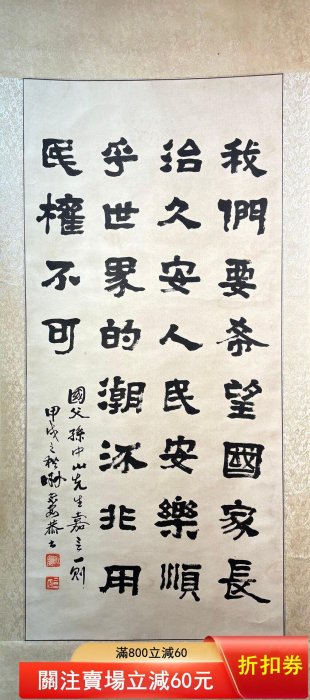 我們要希望國家長
治久安人民安樂順
乎世界的潮流非用
民權不可
國父孫中山先生嘉言一則
甲戌之秋
恭書
滿800立減60
關注賣場立減60元
折扣券